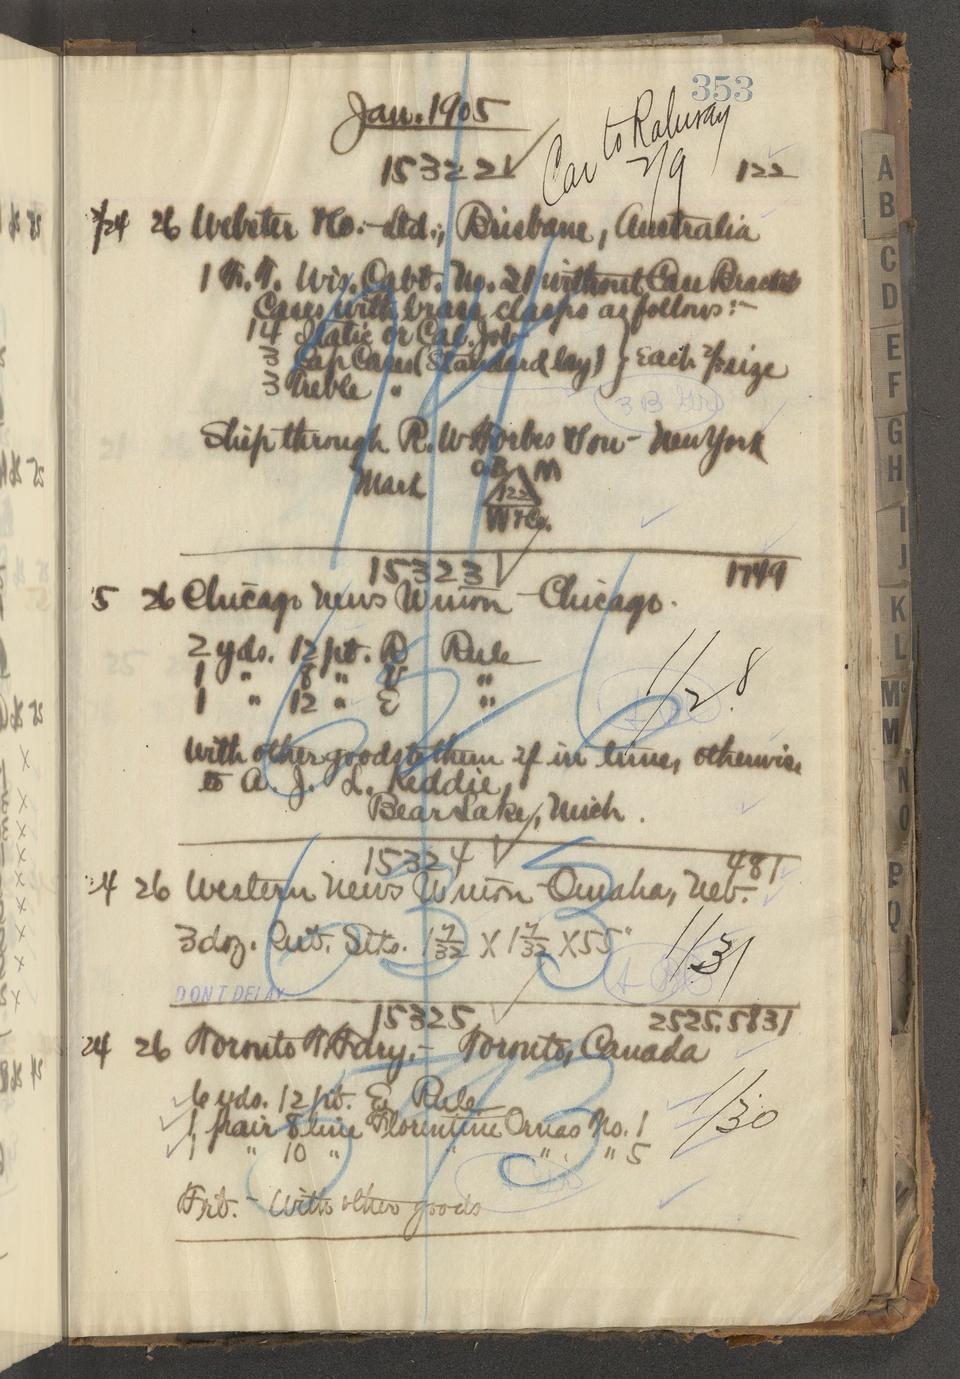 353
Jan. 1905
Car to Rahway
2/9
15322 122
1/24 26 Webster & Co. Ltd., Brisbane, Australia
1 H.T. Wis. Cabt. No. 21 without Case Brackets
Cases with brass clasps as follows:-
14 Italic or Cal. Job
3 Cap Cases (Standard lay) } Each 2/3 size
3 Treble "
Ship through R. W. Forbes & Son - New York
Mark OB M
122
W & Co.
15323 1749
5 26 Chicago News Union - Chicago.
2 yds. 12 pt. D Rule
1 " 8 " V "
1 " 12 " E "
1/28
With other goods to them if in time, otherwise
to A. J. L. Keddie,
Bear Lake, Mich.
15324 481
24 26 Western News Union - Omaha, Neb.
3 doz. Stks. 1 7/32 X 1 7/32 X 55"
1/31
DON'T DELAY
15325 2525.5831
24 26 Toronto T. Fdry. - Toronto, Canada
6 yds. 12 pt. E Rule
1 pair 8 line Florentine Ornas No. 1
1 " 10 " " " " 5
1/30
Frt. - With other goods
A
B
C
D
E
F
G
H
I
J
K
L
Mc
M
N
O
P
Q